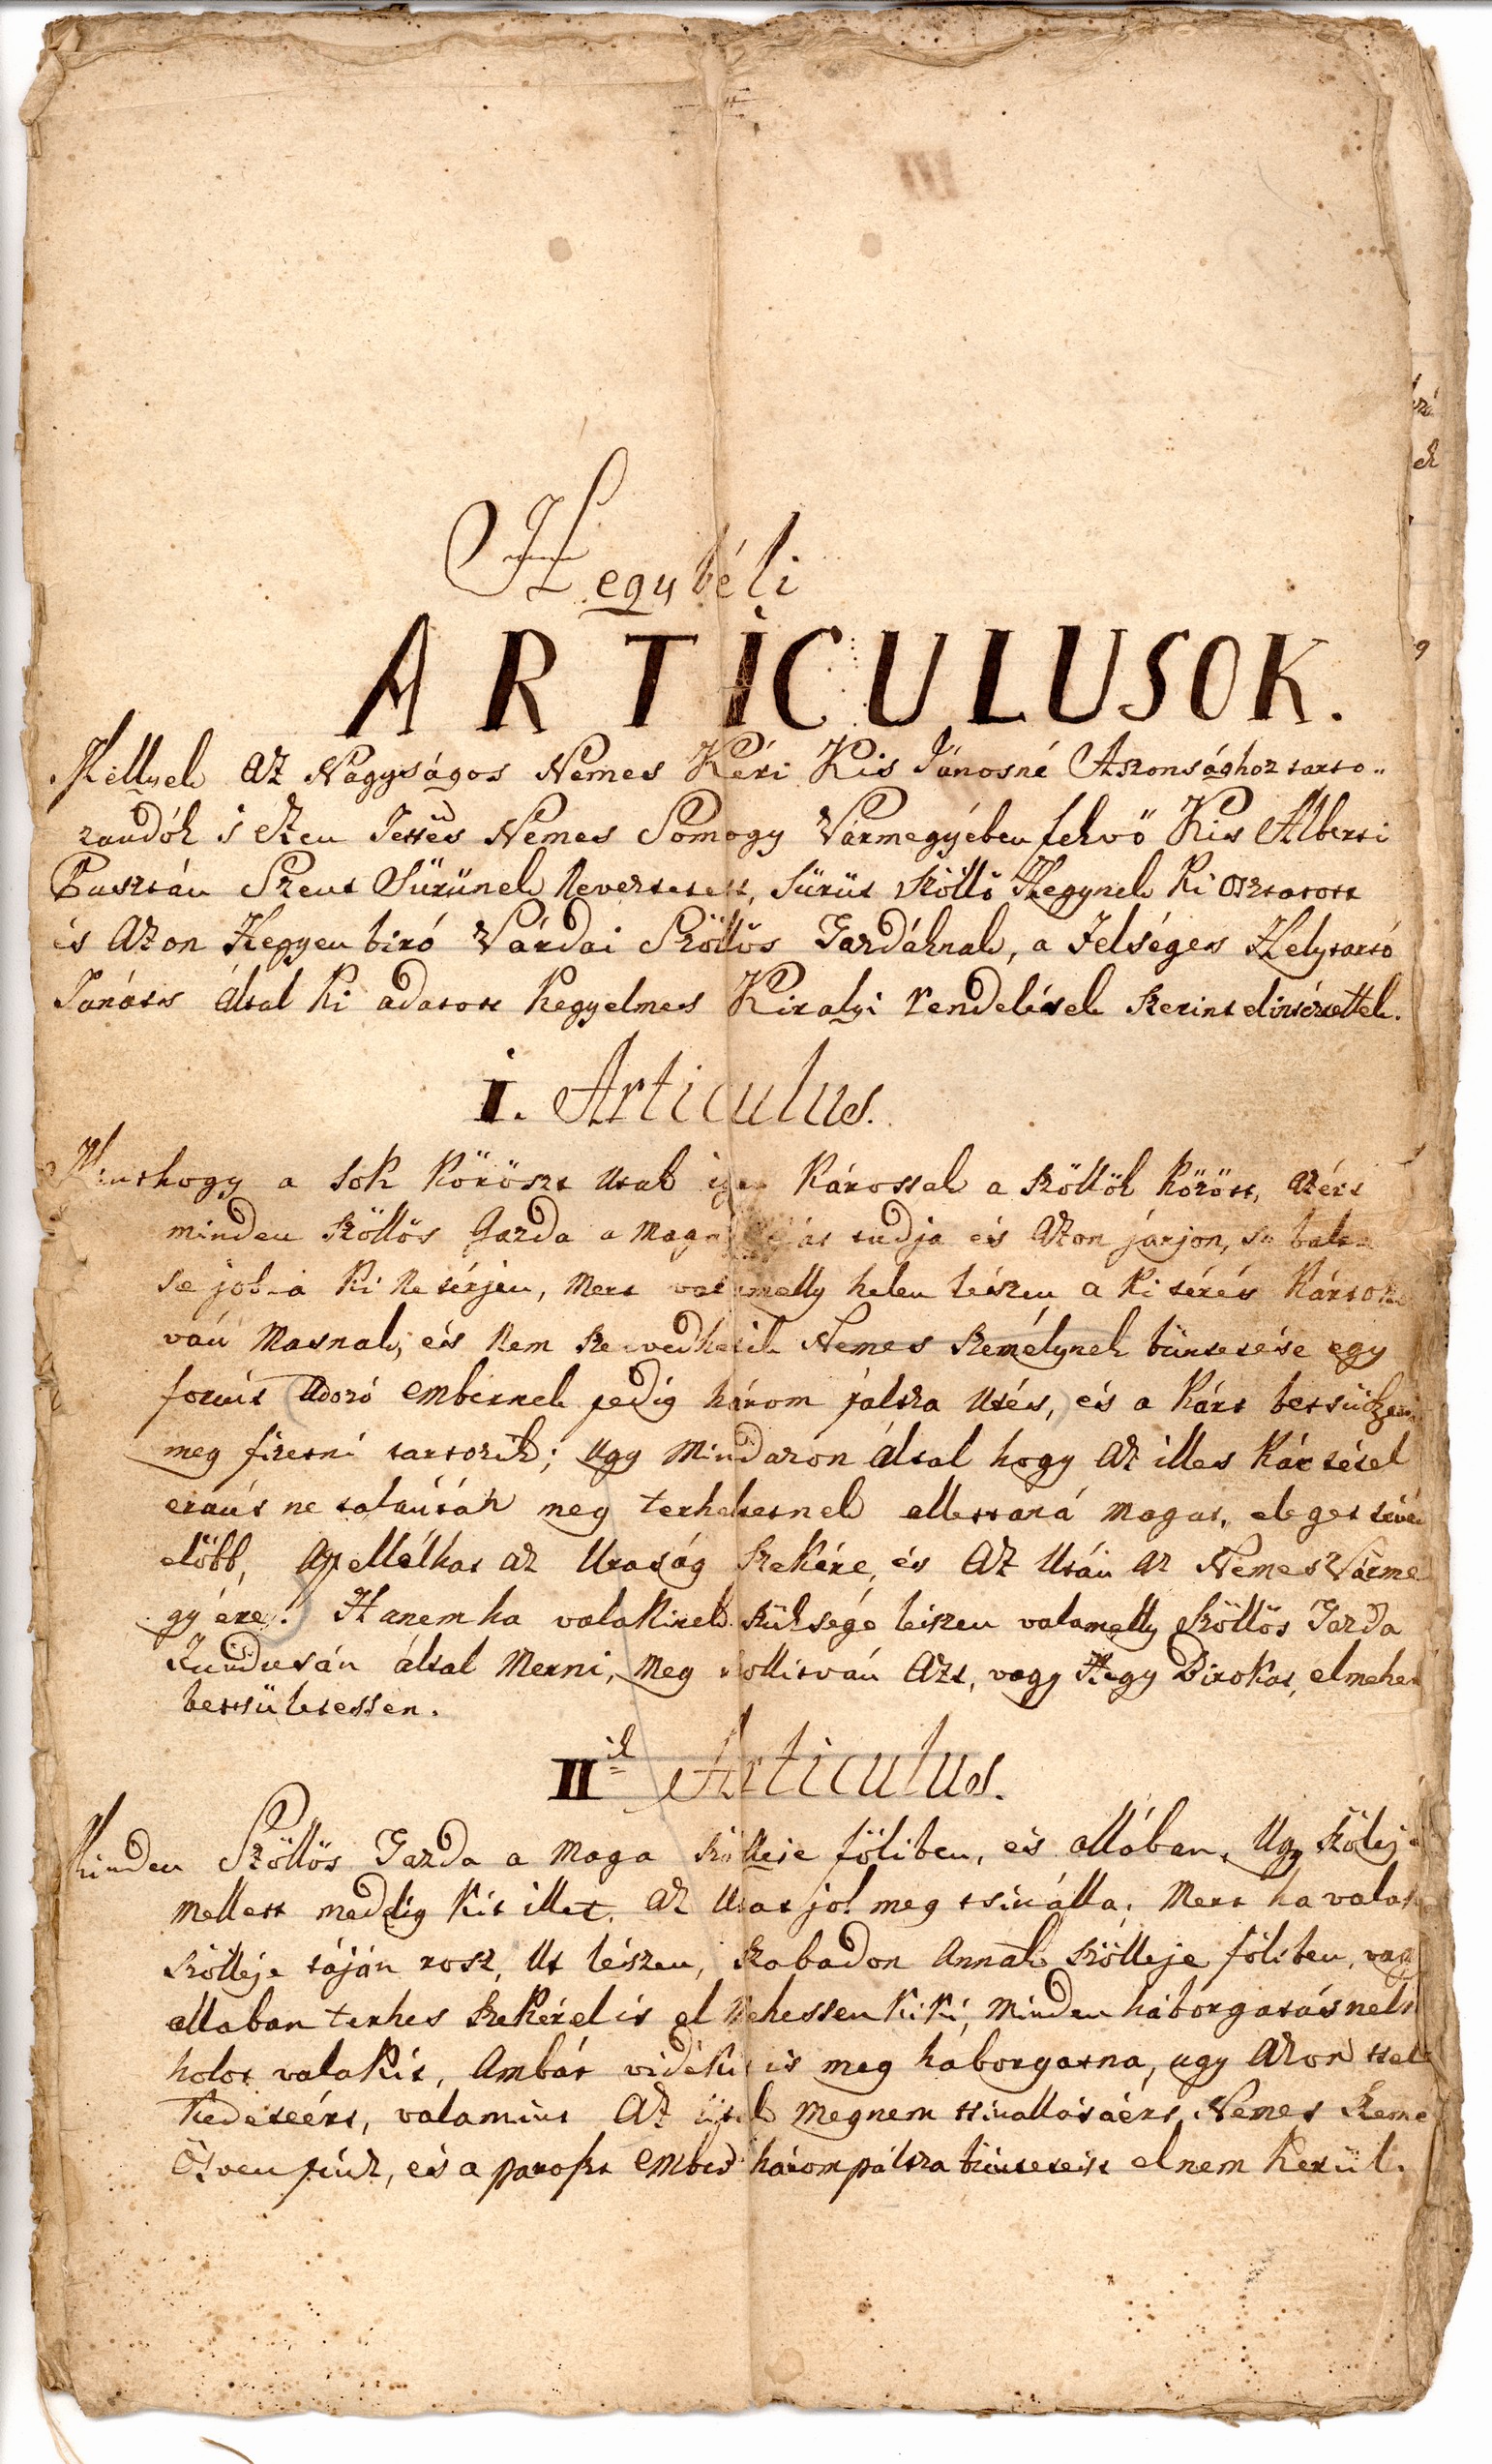 Hegybéli
ARTICULUSOK.
Mellyek az Nagyságos Nemes Kéri Kis Jánosné Aszonsághoz tarto„
zandók s Ezen Tettes Nemes Somogy Vármegyében fekvő Kis Alberti
Pusztán Szent Sürünek Neveztetett, Sürüi Szöllö Hegynek Ki osztatott
és Azon Hegyen biró Várdai Szöllös Gazdáknak, a Felséges Helytartó
Tanáts által Ki adatott Kegyelmes Kiralyi rendelések szerint
I. Articulus.
Minthogy a sok Köröszt utak igen Károssak a szöllök között, azért
minden szöllös Gazda a maga tudja és Azon járjon, se balra
se jobra Ki ne térjen, Mert valamelly helen lészen a Ki térés Kárt
ván Masnak, és Nem szenvedhetik Nemes személynek büntetése egy
forint Adozó embernek pedig három páltza ütés, és a Kárt
meg fizetni tartozik; ugy Mindazon által hogy az illes Kár tétel
eránt ne talántán meg terheltetnek allettaná magát, eleget tévén
elöbb, Apellálhat az Uraság székére, és Az Után az Nemes Várme
gyére. Hanem ha valakinek szüksége lészen valamelly szöllös Gazda
Fundusán által Menni, Meg szollitván Azt, vagy Hegy Birokat, elmehet
betsületessen.
II.ik Articulus.
Minden Szöllös Gazda a maga szölleje föliben, és allában, Ugy szöleje
mellett meddig Kit illet, az Utat jol meg tsinálla, Mert ha valaki
szölleje táján rosz Ut lészen, szabadon Annak szölleje föliben, vagy
allaban terhes szekérel is el mehessen Kiki, minden háborgatás nelkül
holot valakit, Ambár vidékit is meg háborgatna, ugy azon tsele
kedeteért, valamint Az utak megnem tsinallásáért, Nemes szemé
Ötven pénz, és a paraszt Ember három páltza büntetést el nem Kerül.